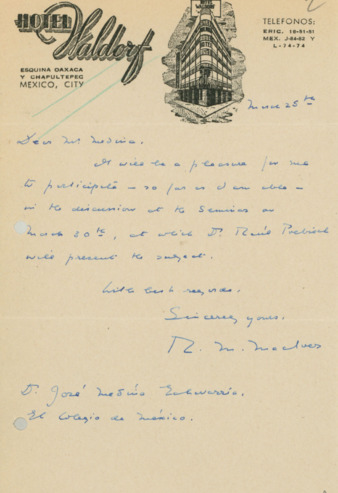 2
HOTEL Waldorf
ESQUINA OAXACA
Y CHAPULTEPEC
MEXICO, CITY
TELEFONOS:
ERIC. 18-51-51
MEX. J-86-52 Y
L-74-74
March 25th
Dear Mr Medina.
It will be a pleasure for me
to participate – so far as I am able –
in the discussion at the Seminar on
March 30th, at which Dr. Raúl Prebisch
will present the subject.
With best regards.
Sincerely yours.
R. M. MacIver
Dr. José Medina Echavarría.
El Colegio de México.